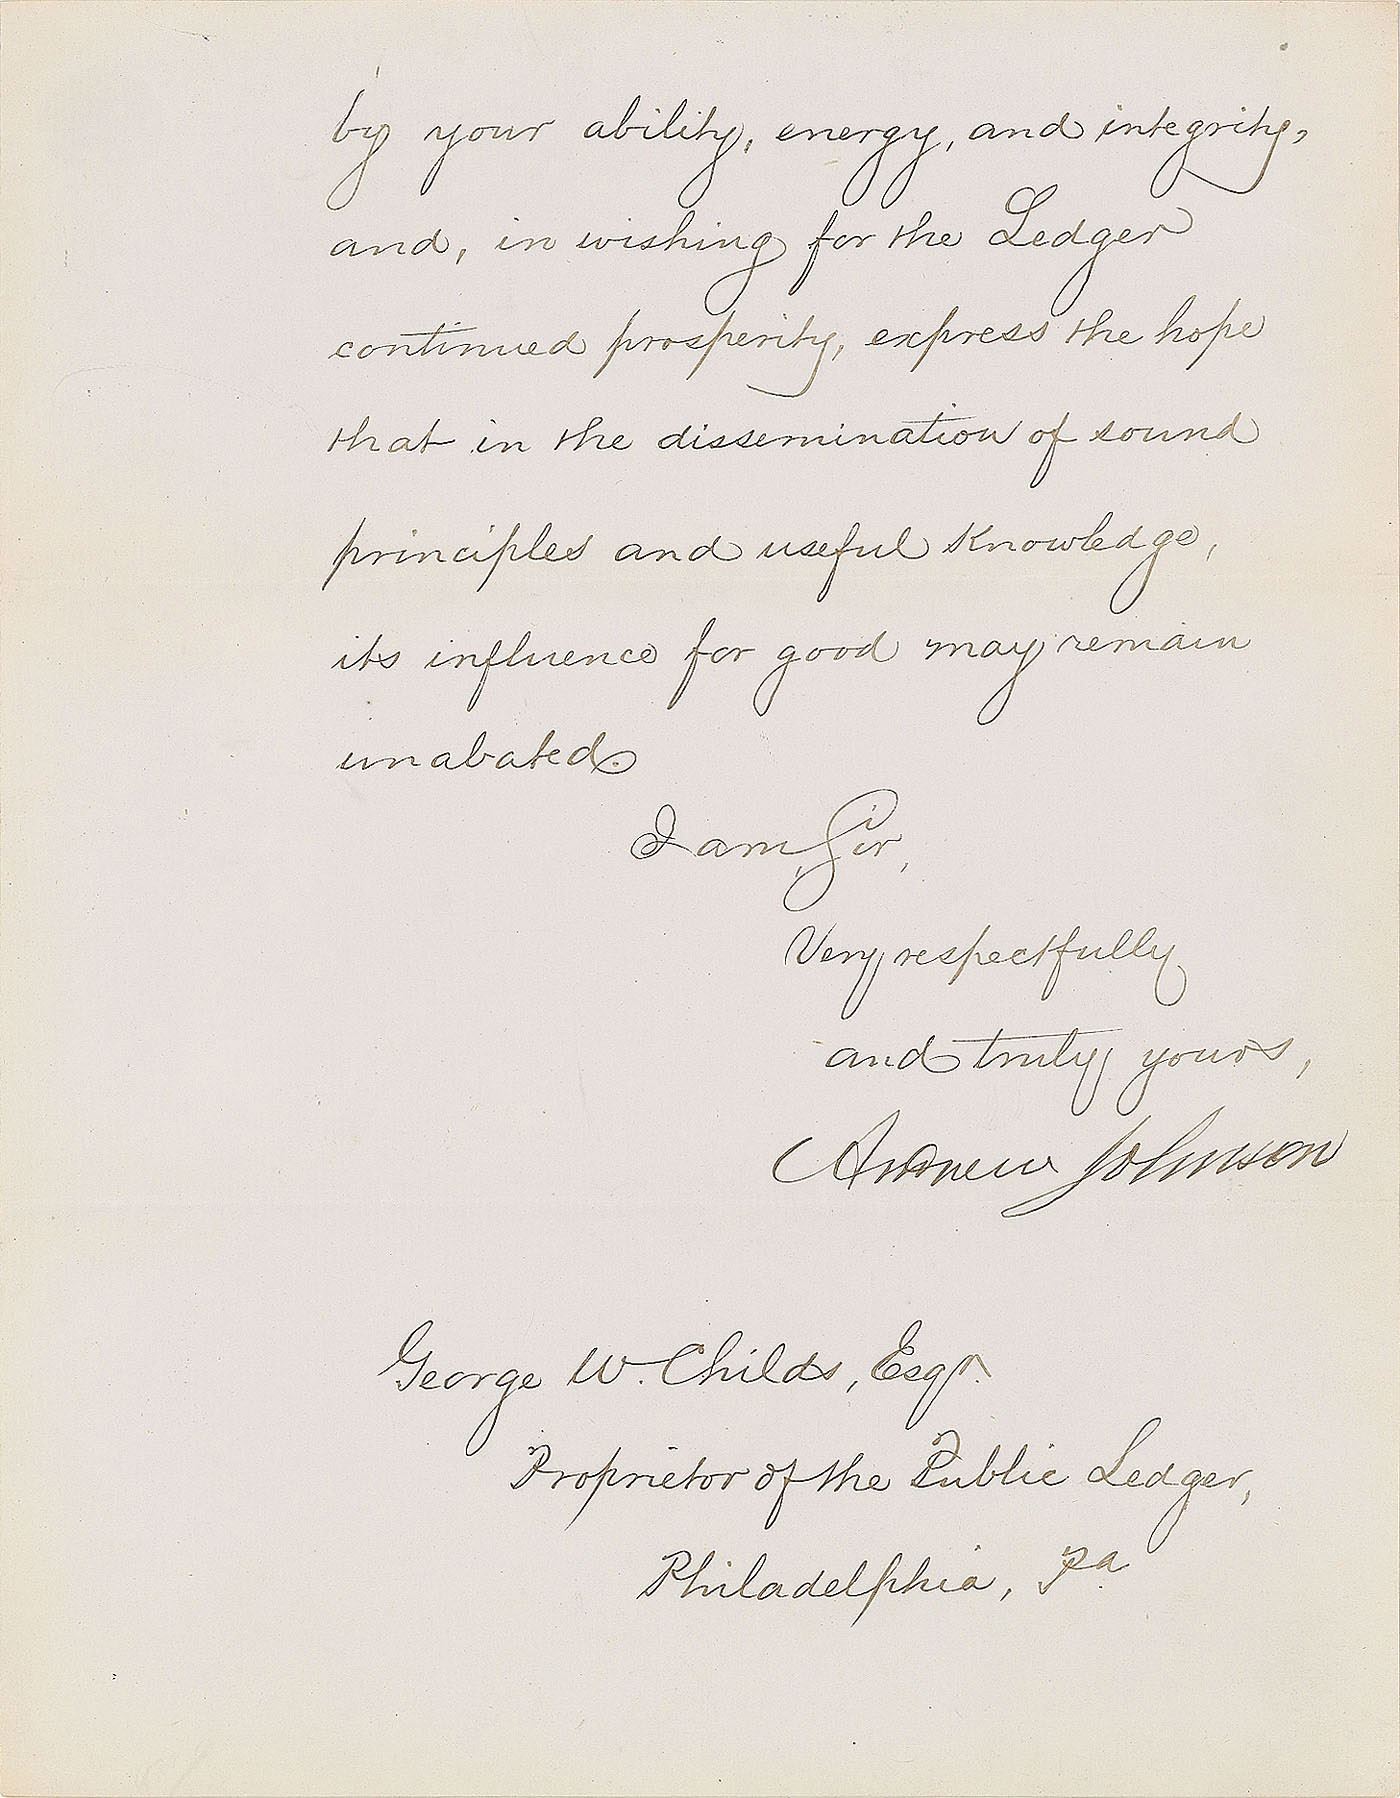 by your ability, energy, and integrity,
and, in wishing for the Ledger
continued prosperity, express the hope
that in the dissemination of sound
principles and useful knowledge,
its influence for good may remain
unabated.
I am, Sir,
Very respectfully
and truly yours,
Andrew Johnson
George W. Childs, Esqr.
Proprietor of the Public Ledger,
Philadelphia, Pa.